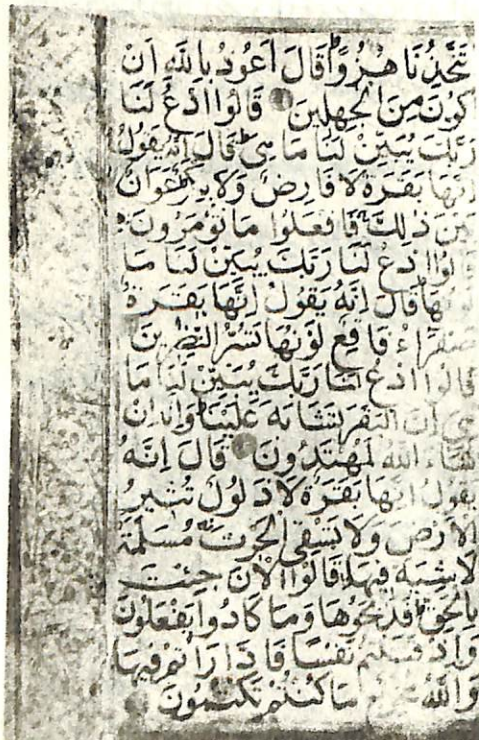 تَتَّخِذُنَا هُزُوًا قَالَ أَعُوذُ بِاللَّهِ أَنْ
كُونَ مِنَ الْجٰهِلِينَ قَالُوا ادْعُ لَنَا
رَبَّكَ يُبَيِّنْ لَنَا مَا هِيَ قَالَ إِنَّهُ يَقُولُ
إِنَّهَا بَقَرَةٌ لَا فَارِضٌ وَلَا بِكْرٌ عَوَانٌ
بَيْنَ ذٰلِكَ فَافْعَلُوا مَا تُؤْمَرُونَ
قَالُوا ادْعُ لَنَا رَبَّكَ يُبَيِّنْ لَنَا مَا
لَوْنُهَا قَالَ إِنَّهُ يَقُولُ إِنَّهَا بَقَرَةٌ
صَفْرَاءُ فَاقِعٌ لَوْنُهَا تَسُرُّ النّٰظِرِينَ
قَالُوا ادْعُ لَنَا رَبَّكَ يُبَيِّنْ لَنَا مَا
هِيَ إِنَّ الْبَقَرَ تَشَابَهَ عَلَيْنَا وَإِنَّا إِنْ
شَاءَ اللَّهُ لَمُهْتَدُونَ قَالَ إِنَّهُ
يَقُولُ إِنَّهَا بَقَرَةٌ لَا ذَلُولٌ تُثِيرُ
الْأَرْضَ وَلَا تَسْقِي الْحَرْثَ مُسَلَّمَةٌ
لَا شِيَةَ فِيهَا قَالُوا الْآنَ جِئْتَ
بِالْحَقِّ فَذَبَحُوهَا وَمَا كَادُوا يَفْعَلُونَ
وَإِذْ قَتَلْتُمْ نَفْسًا فَادّٰرَأْتُمْ فِيهَا
وَاللَّهُ مَا كُنْتُمْ تَكْتُمُونَ